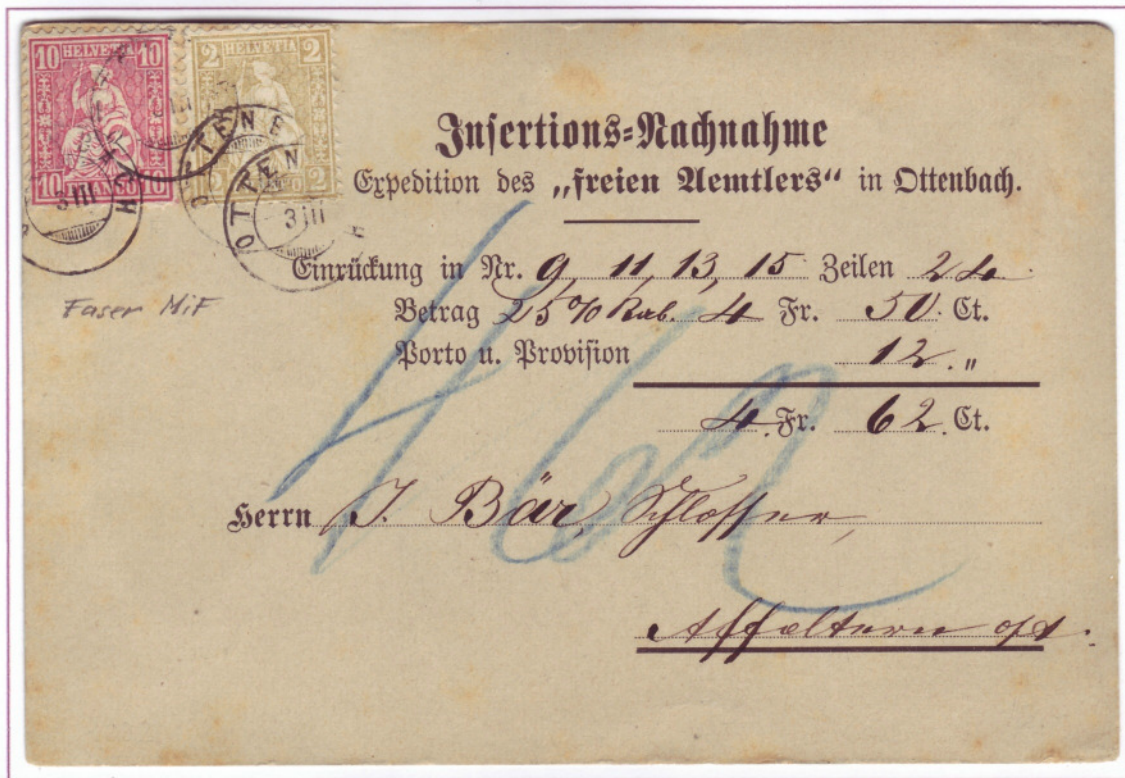 10 HELVETIA 10
10 FRANCO 10
2 HELVETIA 2
2 FRANCO 2
OTTENBACH
3 III
OTTENB
3 III
Insertions=Nachnahme
Expedition des „freien Aemtlers“ in Ottenbach.
Einrückung in Nr. 9, 11, 13, 15 Zeilen 24
Faser MiF
Betrag 25% Rab. 4 Fr. 50. Ct.
Porto u. Provision 12. "
4. Fr. 62. Ct.
4 62
Herrn J. Bär, Schlosser,
Affoltern a/A.